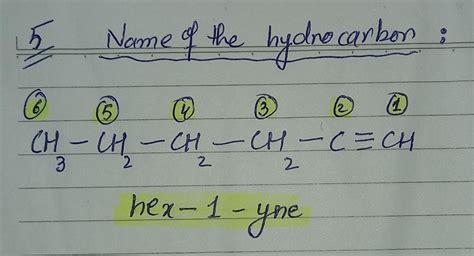 5 Name of the hydrocarbon :
6 5 4 3 2 1
CH₃ – CH₂ – CH₂ – CH₂ – C ≡ CH
hex – 1 – yne